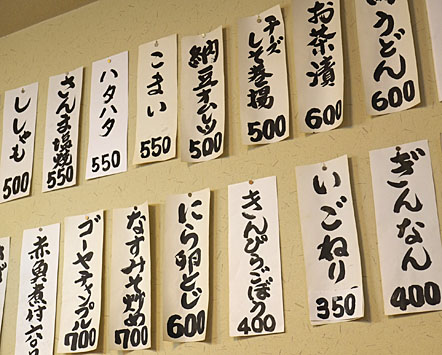 ししゃも
500
さんま塩焼
550
ハタハタ
550
こまい
550
納豆オムレツ
500
チーズ
しそ巻揚
500
お茶漬
600
うどん
600
赤魚煮付
ゴーヤチャンプル
700
なすみそ炒め
700
にら卵とじ
600
きんぴらごぼう
400
いごねり
350
ぎんなん
400